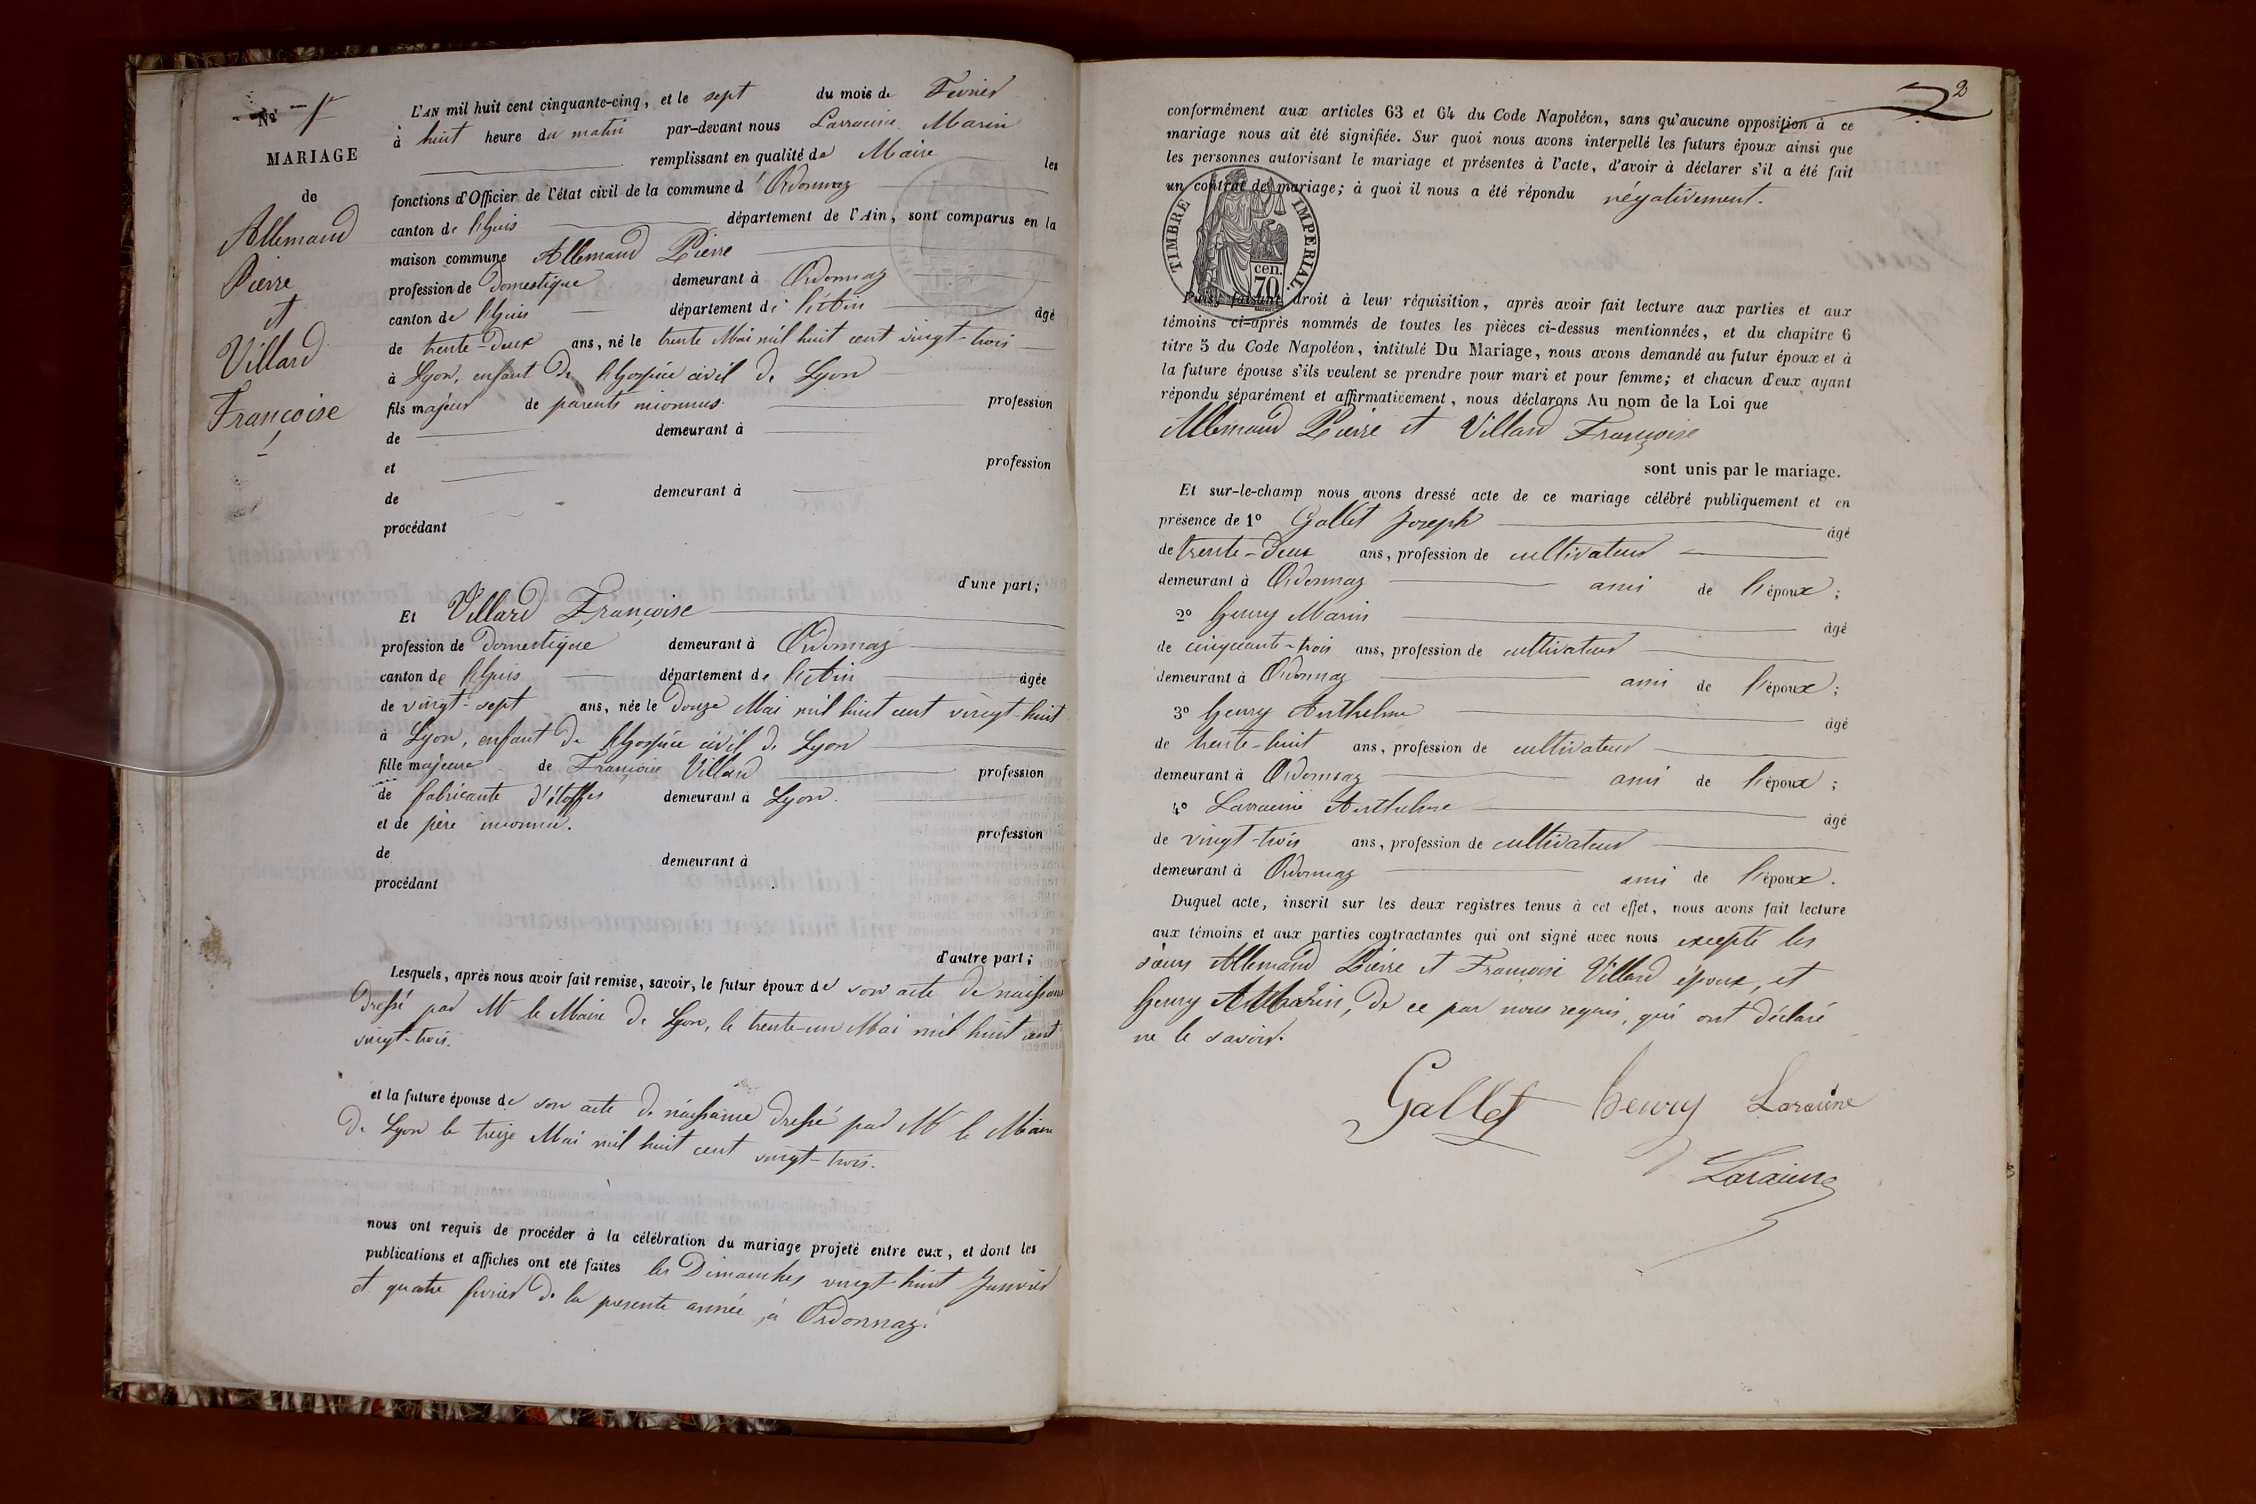 N° 1er
MARIAGE
de
Allemand
Pierre
et
Villard
Françoise
L'AN mil huit cent cinquante-cinq, et le sept du mois de Février
à huit heure du matin par-devant nous Larraine Marin
remplissant en qualité de Maire les
fonctions d'Officier de l'état civil de la commune d'Ordonnaz
canton de lhuis département de l'Ain, sont comparus en la
maison commune Allemand Pierre
profession de domestique demeurant à Ordonnaz
canton de lhuis département de l'Ain âgé
de trente-deux ans, né le trente Mai mil huit cent vingt-trois
à Lyon, enfant de l'hospice civil de Lyon
fils majeur de parents inconnus profession
de demeurant à
et profession
de demeurant à
procédant
d'une part;
Et Villard Françoise
profession de domestique demeurant à Ordonnaz
canton de lhuis département de l'Ain âgée
de vingt-sept ans, née le douze Mai mil huit cent vingt-huit
à Lyon, enfant de l'hospice civil de Lyon
fille majeure de Françoise Villard profession
de fabricante d'étoffes demeurant à Lyon.
et de père inconnu. profession
de demeurant à
procédant
d'autre part;
Lesquels, après nous avoir fait remise, savoir, le futur époux de son acte de naissance
dressé par Mr le Maire de Lyon, le trente-un Mai mil huit cent
vingt-trois.
et la future épouse de son acte de naissance dressé par Mr le Maire
de Lyon le treize Mai mil huit cent vingt-trois.
nous ont requis de procéder à la célébration du mariage projeté entre eux, et dont les
publications et affiches ont été faites les Dimanches vingt-huit Janvier
et quatre février de la présente année, à Ordonnaz.
2
conformément aux articles 63 et 64 du Code Napoléon, sans qu'aucune opposition à ce
mariage nous ait été signifiée. Sur quoi nous avons interpellé les futurs époux ainsi que
les personnes autorisant le mariage et présentes à l'acte, d'avoir à déclarer s'il a été fait
un contrat de mariage; à quoi il nous a été répondu négativement.
TIMBRE IMPERIAL
cen.
70
Puis, faisant droit à leur réquisition, après avoir fait lecture aux parties et aux
témoins ci-après nommés de toutes les pièces ci-dessus mentionnées, et du chapitre 6
titre 5 du Code Napoléon, intitulé Du Mariage, nous avons demandé au futur époux et à
la future épouse s'ils veulent se prendre pour mari et pour femme; et chacun d'eux ayant
répondu séparément et affirmativement, nous déclarons Au nom de la Loi que
Allemand Pierre et Villard Françoise
sont unis par le mariage.
Et sur-le-champ nous avons dressé acte de ce mariage célébré publiquement et en
présence de 1° Gallet Joseph âgé
de trente-deux ans, profession de cultivateur
demeurant à Ordonnaz ami de l'époux;
2° henry Marin âgé
de cinquante-trois ans, profession de cultivateur
demeurant à Ordonnaz ami de l'époux;
3° henry Anthelme âgé
de trente-huit ans, profession de cultivateur
demeurant à Ordonnaz ami de l'époux;
4° Larraine Anthelme âgé
de vingt-trois ans, profession de cultivateur
demeurant à Ordonnaz ami de l'époux.
Duquel acte, inscrit sur les deux registres tenus à cet effet, nous avons fait lecture
aux témoins et aux parties contractantes qui ont signé avec nous excepté les
sieurs Allemand Pierre et Françoise Villard époux, et
henry Marin, de ce par nous requis, qui ont déclaré
ne le savoir.
Gallet henry Laraine
Laraine